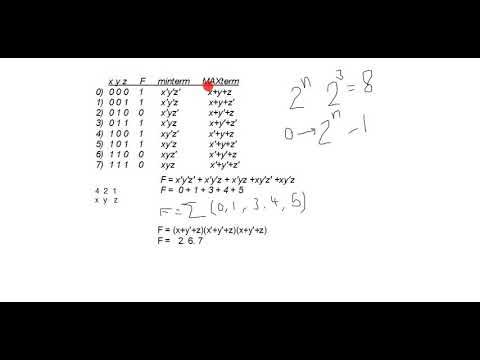 x y z F minterm MAXterm
0) 0 0 0 1 x'y'z' x+y+z
1) 0 0 1 1 x'y'z x+y+z'
2) 0 1 0 0 x'yz' x+y'+z
3) 0 1 1 1 x'yz x+y'+z'
4) 1 0 0 1 xy'z' x'+y+z
5) 1 0 1 1 xy'z x'+y+z'
6) 1 1 0 0 xyz' x'+y'+z
7) 1 1 1 0 xyz x'+y'+z'
2^n 2^3 = 8
0 → 2^n - 1
4 2 1
x y z
F = x'y'z' + x'y'z + x'yz +xy'z' +xy'z
F = 0 + 1 + 3 + 4 + 5
F = Σ (0, 1, 3, 4, 5)
F = (x+y'+z)(x'+y'+z)(x+y'+z)
F = 2. 6. 7